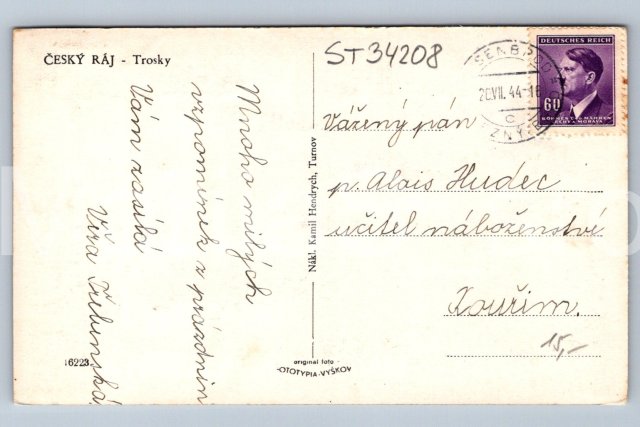 ČESKÝ RÁJ - Trosky
Mnoho milých
vzpomínek z prázdnin
Vám zasílá
Věra Třebínská.
16223
Nákl. Kamil Hendrych, Turnov
original foto
-OTOTYPIA-VYŠKOV
ST34208
20.VII.44-16
C
DEUTSCHES REICH
60
BÖHMEN UND MÄHREN
ČECHY A MORAVA
Vážený pán
p. Alois Hudec
učitel náboženství
Kouřim.
15,-